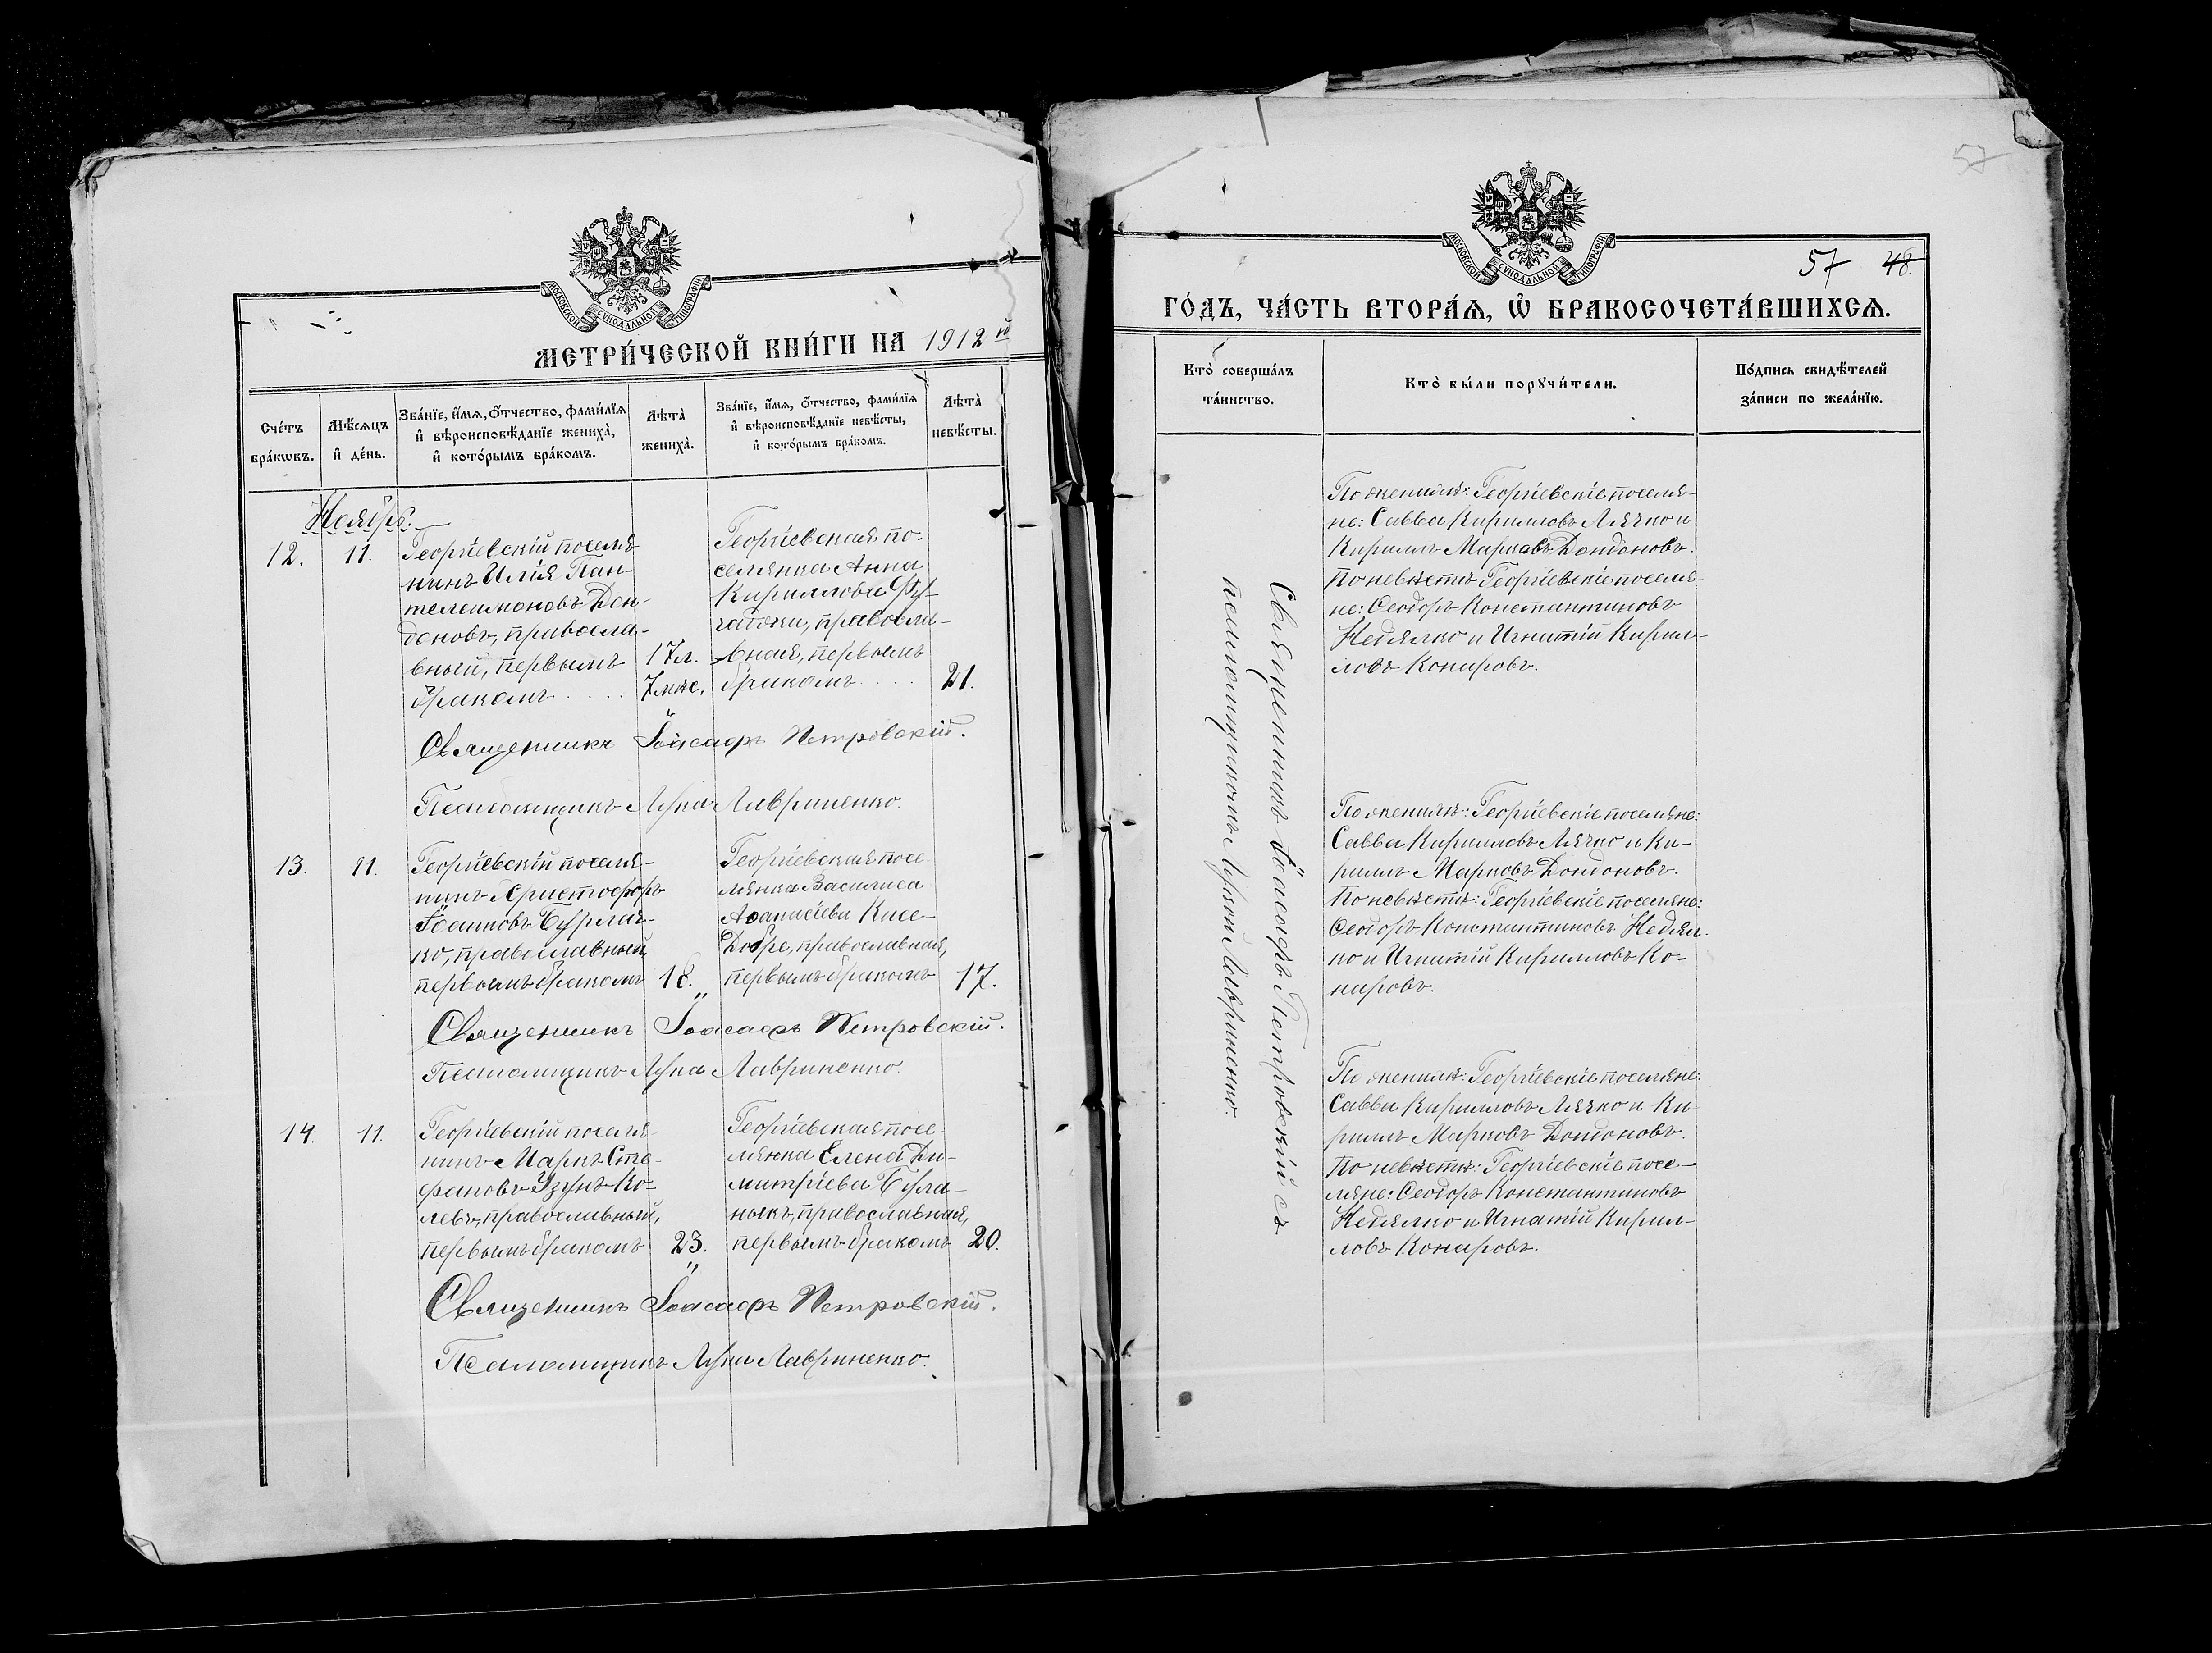 МОСКОВСКОЙ СѴНОДАЛЬНОЙ ТИПОГРАФІИ
МЕТРИ́ЧЕСКОЙ КНИ́ГИ НА 1912 й
Сче́тъ бра́кѡвъ.
Мѣ́сѧцъ и҆ де́нь.
Зва́нїе, и҆́мѧ, ѻ҆́тчество, фами́лїѧ
и҆ вѣроисповѣ́данїе жениха̀,
и҆ кото́рымъ бра́комъ.
Лѣта̀ жениха̀.
Зва́нїе, и҆́мѧ, ѻ҆́тчество, фами́лїѧ
и҆ вѣроисповѣ́данїе невѣ́сты,
и҆ кото́рымъ бра́комъ.
Лѣта̀ невѣ́сты.
Ноябрь.
12.
11.
Георгіевскій поселя-
нинъ Илія Пан-
телеимоновъ Дон-
доновъ, правосла-
вный, первымъ
бракомъ . . . .
17 л.
7 мѣс.
Георгіевская по-
селянка Анна
Кириллова
православ-
вная, первымъ
бракомъ . . . .
21.
Священникъ Іоасафъ Петровскій.
Псаломщикъ Лука Лавриненко.
13.
11.
Георгіевскій поселя-
нинъ Христофоръ
Іоанновъ Бурлач-
ко, православный,
первымъ бракомъ
18.
Георгіевская посе-
лянка Василиса
Аѳанасіева Кисе-
Добре, православная,
первымъ бракомъ
17.
Священникъ Іоасафъ Петровскій.
Псаломщикъ Лука Лавриненко.
14.
11.
Георгіевскій поселя-
нинъ Маркъ Сте-
фановъ Узунъ-Ко-
левъ, православный,
первымъ бракомъ
23.
Георгіевская посе-
лянка Елена Ди-
митріева Була-
ныкъ, православная,
первымъ бракомъ
20.
Священникъ Іоасафъ Петровскій.
Псаломщикъ Лука Лавриненко.
57
МОСКОВСКОЙ СѴНОДАЛЬНОЙ ТИПОГРАФІИ
57 48.
ГО́ДЪ, ЧА́СТЬ ВТОРА́Ѧ, Ѡ҆ БРАКОСОЧЕТА́ВШИХСѦ.
Кто̀ соверша́лъ
та́инство.
Кто̀ бы́ли порꙋчи́тели.
По́дпись свидѣ́телей
за́писи по жела́нїю.
Священникъ Іоасафъ Петровскій съ
псаломщикомъ Лукой Лавриненко.
По женихѣ: Георгіевскіе поселя-
не: Савва Кирилловъ Лячко и
Кириллъ Марковъ Дондоновъ.
По невѣстѣ: Георгіевскіе поселя-
не: Ѳеодоръ Константиновъ
Недялко и Игнатій Кирил-
ловъ Конаровъ.
По женихѣ: Георгіевскіе поселяне:
Савва Кирилловъ Лячко и Ки-
риллъ Марковъ Дондоновъ.
По невѣстѣ: Георгіевскіе поселяне:
Ѳеодоръ Константиновъ Недял-
ко и Игнатій Кирилловъ Ко-
наровъ.
По женихѣ: Георгіевскіе поселяне:
Савва Кирилловъ Лячко и Ки-
риллъ Марковъ Дондоновъ.
По невѣстѣ: Георгіевскіе посе-
ляне: Ѳеодоръ Константиновъ
Недялко и Игнатій Кирил-
ловъ Конаровъ.